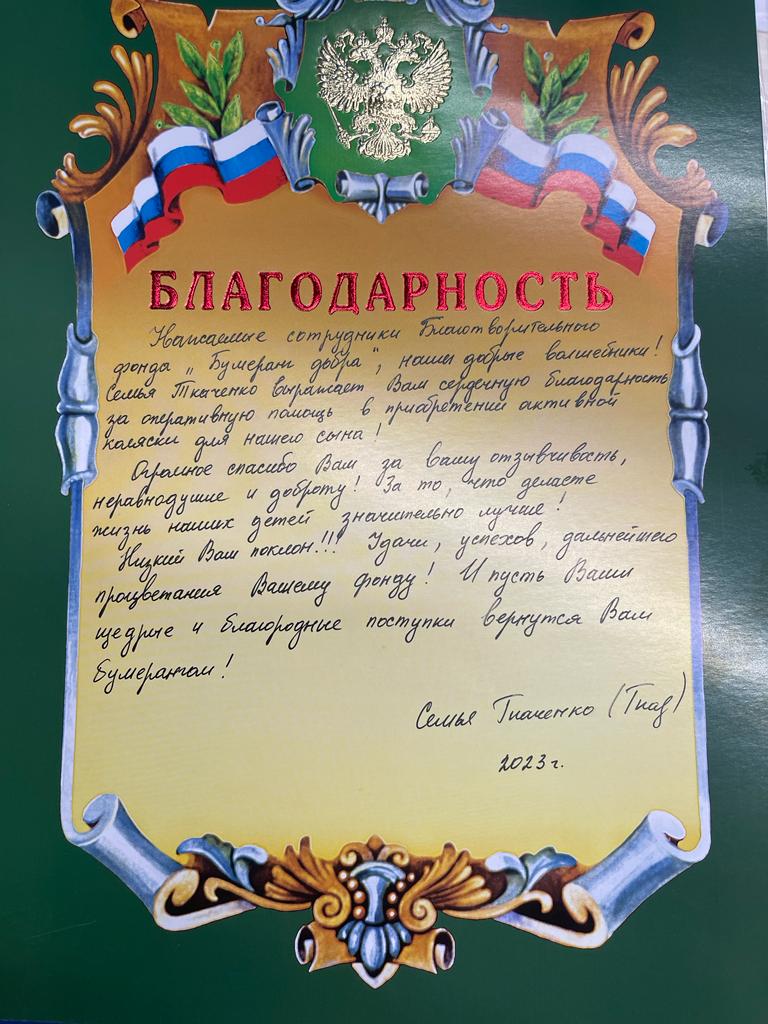 БЛАГОДАРНОСТЬ
Уважаемые сотрудники Благотворительного
фонда „Бумеранг добра", наши добрые волшебники!
Семья Ткаченко выражает Вам сердечную благодарность
за оперативную помощь в приобретении активной
коляски для нашего сына!
Огромное спасибо Вам за вашу отзывчивость,
неравнодушие и доброту! За то, что делаете
жизнь наших детей значительно лучше!
Низкий Вам поклон!!! Удачи, успехов, дальнейшего
процветания Вашему фонду! И пусть Ваши
щедрые и благородные поступки вернутся Вам
бумерангом!
Семья Ткаченко
2023 г.